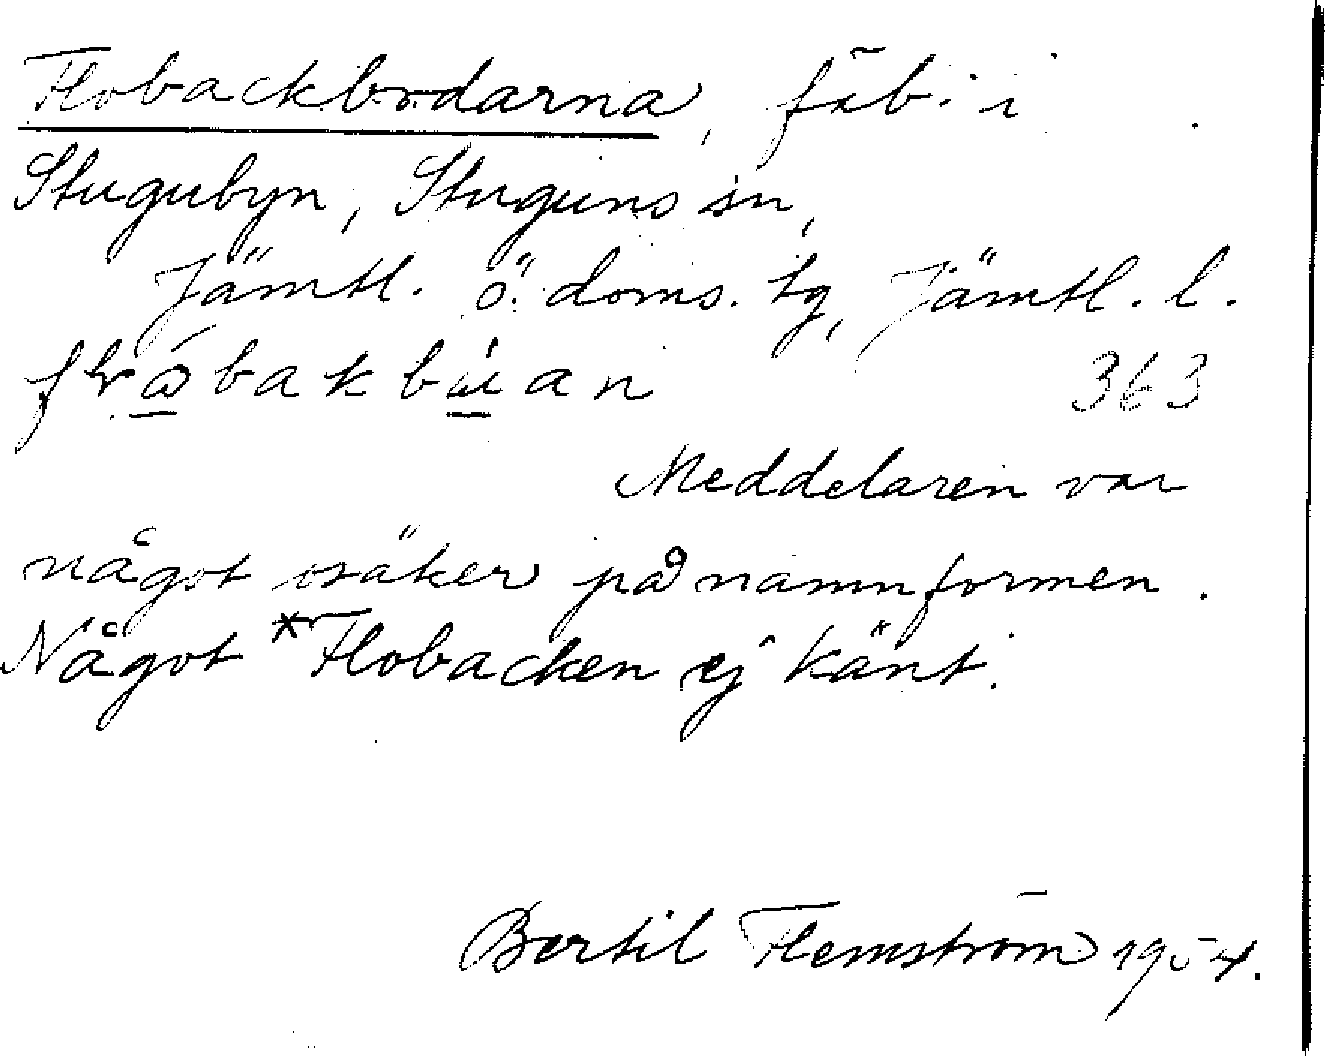 Flobackbodarna, fäb. i
Stugubyn, Stuguns sn,
Jämtl. ö. doms. tg, Jämtl. l.
bakbùan 363
Meddelaren var
något osäker på namnformen.
Något *Flobacken ej känt.
Bertil Flemström 1954.